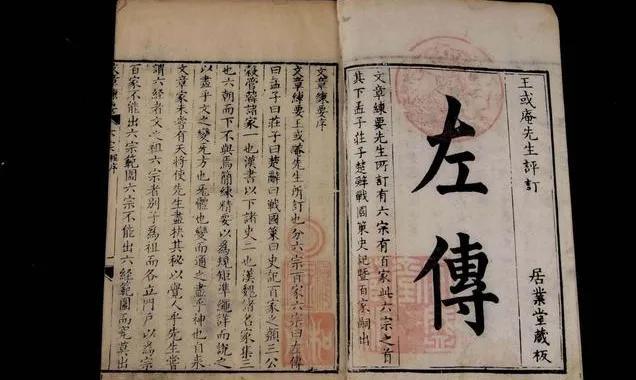 王或庵先生評訂
居業堂藏板
左傳
文章練要先生所訂有六宗有百家此六宗之首
其下孟子莊子楚辭戰國策史記暨百家嗣出
文章練要序
文章練要王或庵先生所訂也分六宗百家六宗曰左傳
曰孟子曰莊子曰楚辭曰戰國策曰史記百家之類三公
穀管韓諸家一也漢書以下諸史二也漢魏諸名家集三
也六朝而下不與焉簡練精要以為規矩準繩詳而說之
以盡乎文之變先方也死體也變而通之盡乎神也自來
文章家未嘗有天將使先生盡抉其秘以覺人乎先生嘗
謂六經者文之祖六宗者別子為祖而各立門戶以為宗
百家不能出六宗範圍六宗不能出六經範圍而究莫出